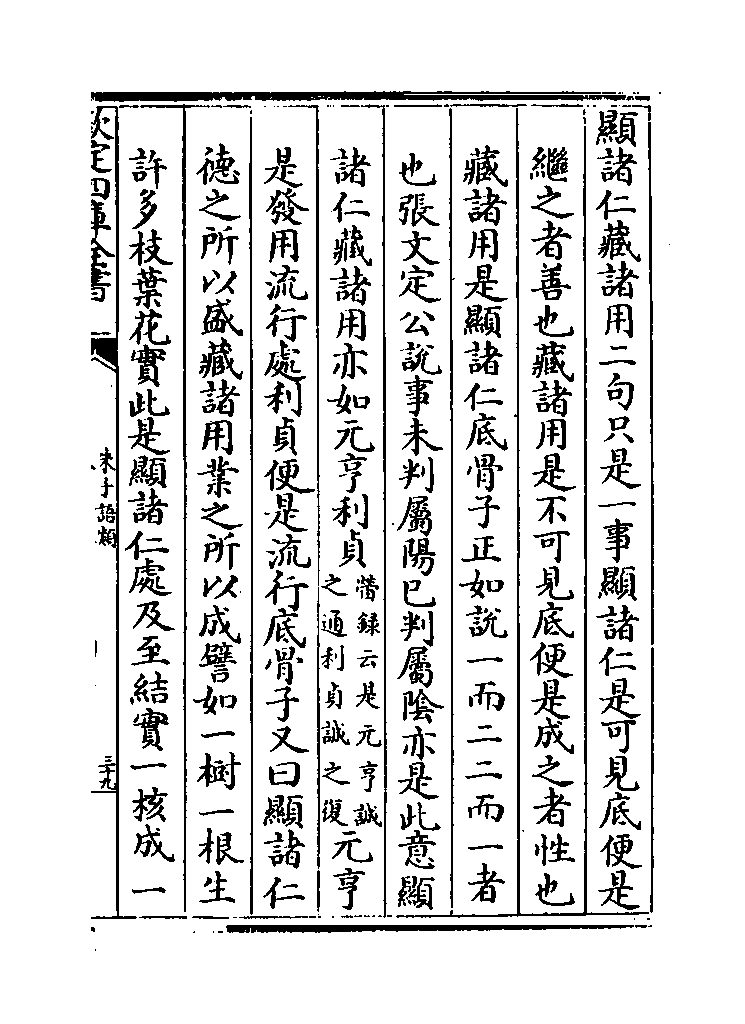 顯諸仁藏諸用二句只是一事顯諸仁是可見底便是
繼之者善也藏諸用是不可見底便是成之者性也
藏諸用是顯諸仁底骨子正如說一而二二而一者
也張文定公說事未判屬陽已判屬陰亦是此意顯
諸仁藏諸用亦如元亨利貞
㽦錄云是元亨誠
之通利貞誠之復
元亨
是發用流行處利貞便是流行底骨子又曰顯諸仁
德之所以盛藏諸用業之所以成譬如一樹一根生
許多枝葉花實此是顯諸仁處及至結實一核成一
欽定四庫全書
朱子語類
三十九